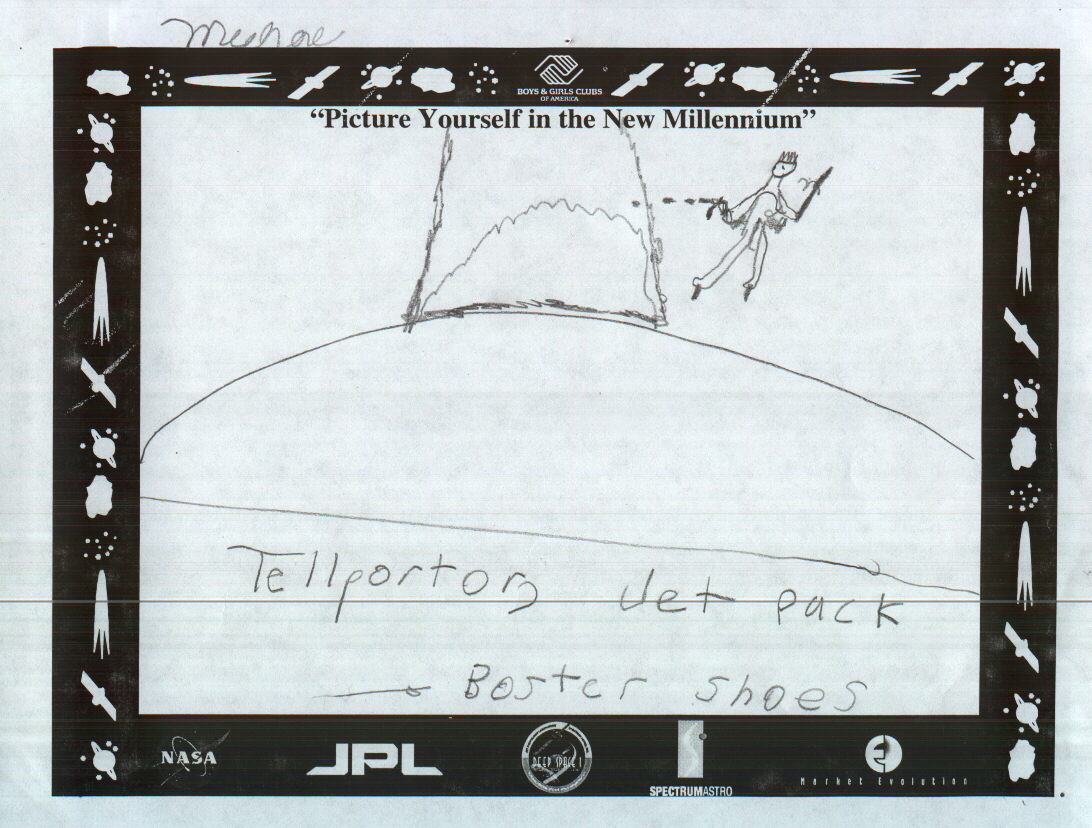 BOYS & GIRLS CLUBS
OF AMERICA
“Picture Yourself in the New Millennium”
Tellportor Jet pack
Boster shoes
NASA
JPL
DEEP SPACE 1
SPECTRUMASTRO
Market Evolution